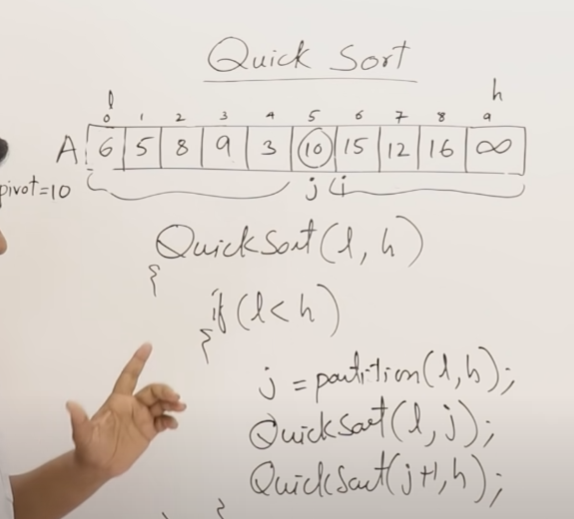 Quick Sort
l h
0 1 2 3 4 5 6 7 8 9
A 6 5 8 9 3 10 15 12 16 ∞
pivot=10 j i
QuickSort(l, h)
{
if (l<h)
{
j = partition(l,h);
QuickSort(l, j);
QuickSort(j+1, h);
}